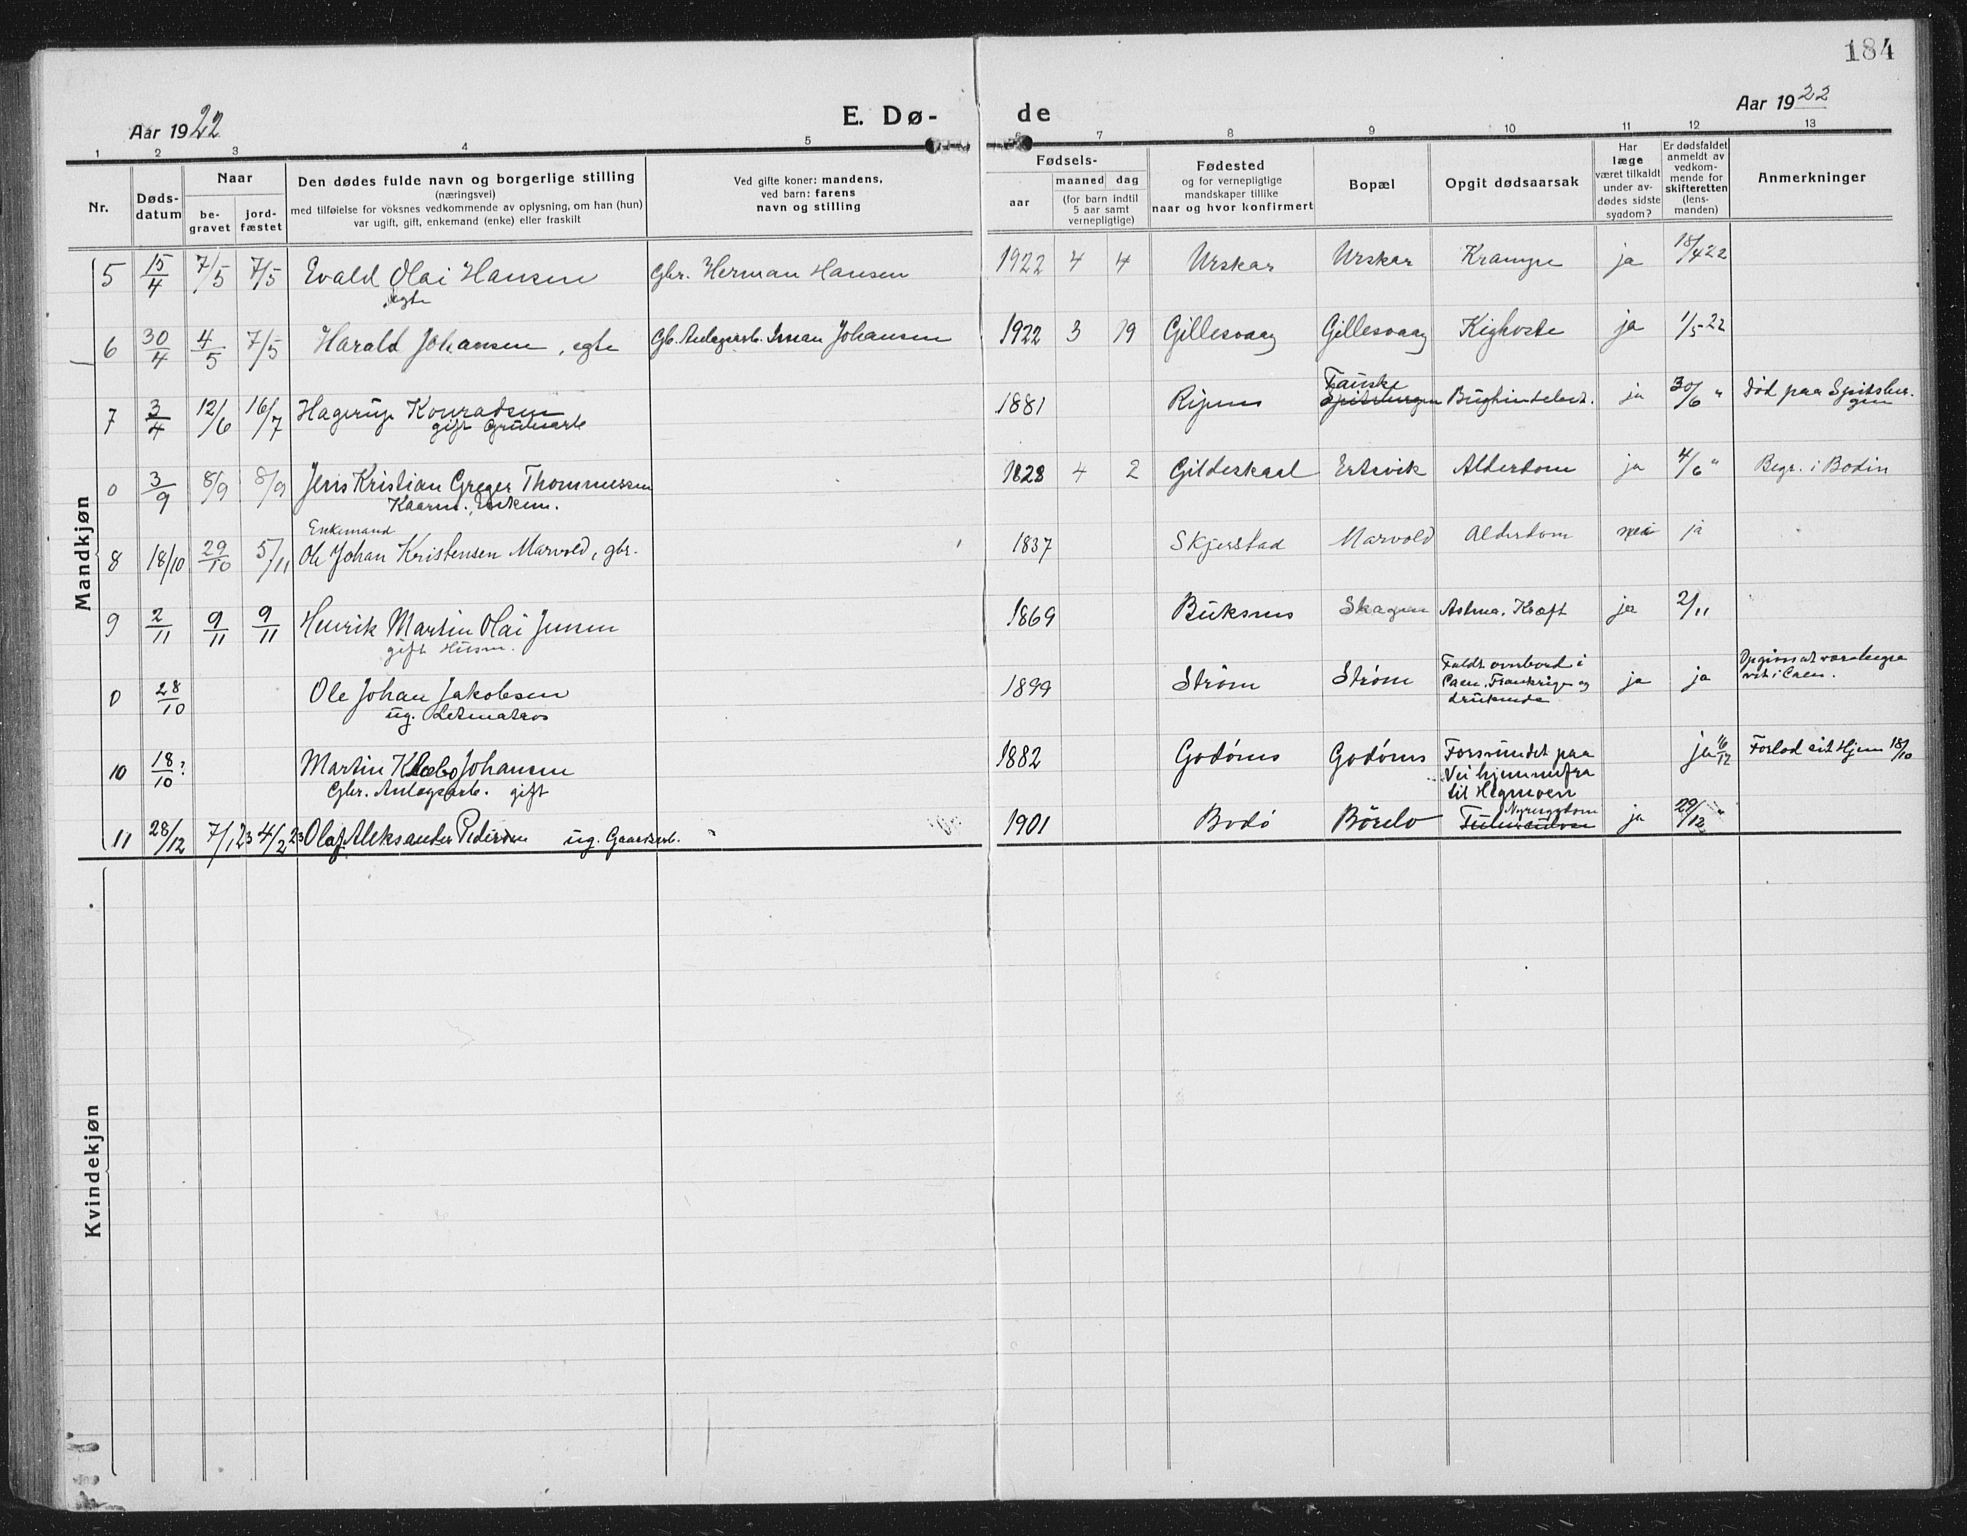 184
Aar 1922
E. Dø-
de
Aar 1922
1 2 3 4 5 6 7 8 9 10 11 12 13
Nr.
Døds-
datum
Naar
be-
gravet
jord-
fæstet
Den dødes fulde navn og borgerlige stilling
(næringsvei)
med tilføielse for voksnes vedkommende av oplysning, om han (hun)
var ugift, gift, enkemand (enke) eller fraskilt
Ved gifte koner: mandens,
ved barn: farens
navn og stilling
Fødsels-
aar
maaned dag
(for barn indtil
5 aar samt
vernepligtige)
Fødested
og for vernepligtige
mandskaper tillike
naar og hvor konfirmert
Bopæl
Opgit dødsaarsak
Har
læge
været tilkaldt
under av-
dødes sidste
sygdom?
Er dødsfaldet
anmeldt av
vedkom-
mende for
skifteretten
(lens-
manden)
Anmerkninger
Mandkjøn
5 15/4 7/5 7/5 Evald Olai Hansen Gbr. Herman Hansen 1922 4 4 Urskar Urskar Krampe ja 18/4 22
egte
6 30/4 4/5 7/5 Harald Johansen, egte Gb. Anlegsarb. Johansen 1922 3 19 Gillesvaag Gillesvaag Kighoste ja 1/5-22
7 3/4 12/6 16/7 Hagerup Konradsen 1881 Fauske Spitsbergen ja 30/6 " Død paa Spitsber-
gen
gift Grubearb
0 3/9 8/9 8/9 Jens Kristian Greger Thommessen 1828 4 2 Gildeskaal Ertsvik Alderdom ja 4/6 " Begr. i Bodin
Kaarm. Enkem.
Enkemand
8 18/10 29/10 5/11 Ole Johan Kristensen Marvold, gbr. 1837 Skjerstad Marvold Alderdom nei ja
9 2/11 9/11 9/11 Henrik Martin Olai Jensen 1869 Buksnes Skagen Astma. Kræft ja 2/11
gift Husm.
0 28/10 Ole Johan Jakobsen 1899 Strøm Strøm Faldt overbord i
Caen, Frankrige og
druknede ja ja
vet i Caen.
ug. Letmatros
10 18/10? Martin Klæbo Johansen 1882 Godønes Godønes Forsvundet paa
Vei hjemmefra
til Hegmoen ja 6/12 Forlod sit Hjem 18/10
Gbr. Anlegsarb. gift
11 28/12 7/1 23 4/2 23 Olaf Aleksander Pedersen ug. Gaardsarb. 1901 Bodø Børelv Nyresygdom
Tuberculose ja 29/12 "
Kvindekjøn